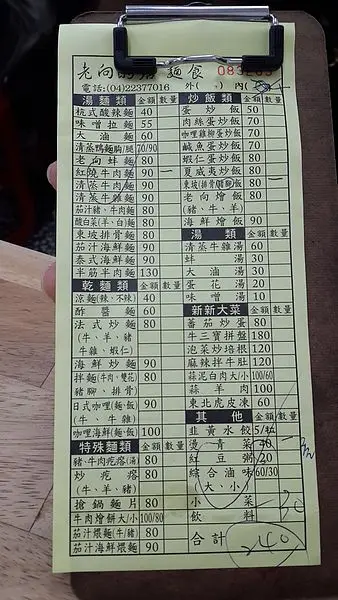 老向的店 麵食
電話:(04)22377016 外( ) 內( )
湯麵類 金額 數量
杭式酸辣麵 40
味噌拉麵 55
大滷麵 60
清蒸鴨麵 70/90
老向蚌麵 80
紅燒牛肉麵 90 一
清蒸牛肉麵 90
清蒸牛雜麵 90
茄汁豬、牛肉麵 80
酸白菜(羊、白)麵 80
東坡排骨麵 80
茄汁海鮮麵 90
泰式海鮮麵 90
半筋半肉麵 130
乾麵類 金額 數量
涼麵(辣、不辣) 40
酢醬麵 60
法式炒麵 80
(牛、羊、豬
牛雜、蝦仁)
海鮮炒麵 90
拌麵(牛肉、雙花) 80
豬腳、排骨)
日式咖哩(麵、飯) 90
(牛、牛雜)
咖哩海鮮(麵、飯) 100
特殊麵類 金額 數量
豬、牛肉疙瘩(湯) 80
炒疙瘩 80
(牛、羊、豬)
搶鍋麵片 80
牛肉燴餅大/小 100/80
茄汁煨麵(牛/豬) 80
茄汁海鮮煨麵 90
炒飯類 金額 數量
蛋炒飯 50
肉絲蛋炒飯 70
咖哩雞柳蛋炒飯 70
鹹魚蛋炒飯 70
蝦仁蛋炒飯 80
夏威夷炒飯 80
東坡(排骨/腳)飯 80 一
老向燴飯 80
(豬、牛、羊)
海鮮燴飯 90
湯類 金額 數量
清蒸牛雜湯 60
蚌湯 30
大滷湯 30
蛋花湯 20
味噌湯 10
新新大菜 金額 數量
番茄炒蛋 80
牛三寶拼盤 180
泡菜炒培根 120
麻辣拌牛肚 120
蒜泥白肉大/小 100/60
蒜羊肉 100
東北虎皮凍 60
其他 金額 數量
韭黃水餃 5/
燙青菜 40
紅豆粥 20
綜合滷味 60/30
(大、小)
小菜 30
飲料
合計 240